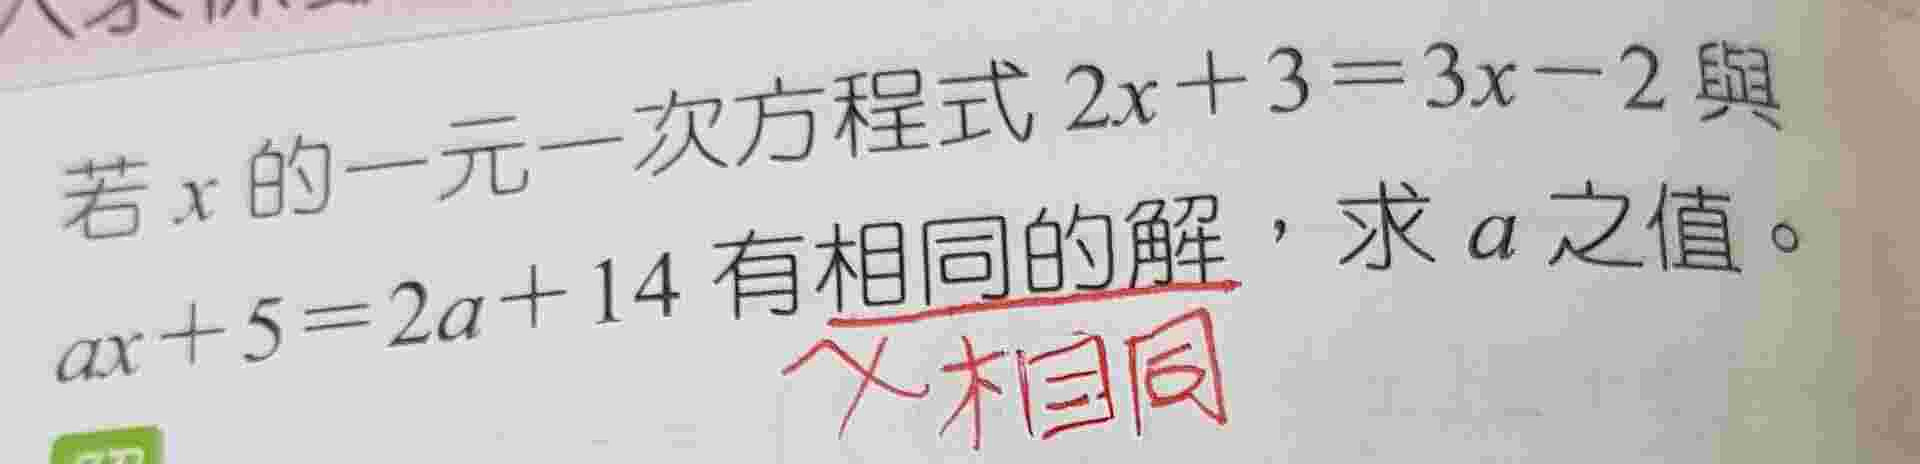 若 x 的一元一次方程式 2x+3=3x-2 與
ax+5=2a+14 有相同的解,求 a 之值。
x 相同